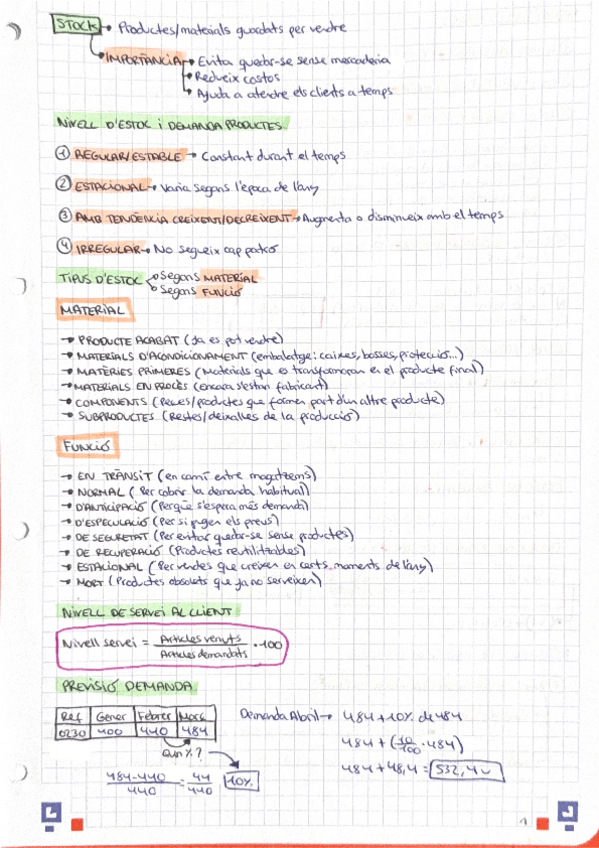 STOCK → Productes/materials guardats per vendre
IMPORTÀNCIA → Evita quedar-se sense mercaderia
→ Redueix costos
→ Ajuda a atendre els clients a temps
NIVELL D'ESTOC I DEMANDA PRODUCTES
① REGULAR/ESTABLE → Constant durant el temps
② ESTACIONAL → Varia segons l'època de l'any
③ AMB TENDÈNCIA CREIXENT/DECREIXENT → Augmenta o disminueix amb el temps
④ IRREGULAR → No segueix cap patró
TIPUS D'ESTOC → Segons MATERIAL
→ Segons FUNCIÓ
MATERIAL
→ PRODUCTE ACABAT (Ja es pot vendre)
→ MATERIALS D'ACONDICIONAMENT (embalatge: caixes, bosses, protecció...)
→ MATÈRIES PRIMERES (Materials que es transformaran en el producte final)
→ MATERIALS EN PROCÉS (encara s'estan fabricant)
→ COMPONENTS (Peces/productes que formen part d'un altre producte)
→ SUBPRODUCTES (Restes/deixalles de la producció)
FUNCIÓ
→ EN TRÀNSIT (en camí entre magatzems)
→ NORMAL (Per cobrir la demanda habitual)
→ D'ANTICIPACIÓ (Perquè s'espera més demanda)
→ D'ESPECULACIÓ (Per si pugen els preus)
→ DE SEGURETAT (Per evitar quedar-se sense productes)
→ DE RECUPERACIÓ (Productes reutilitzables)
→ ESTACIONAL (Per vendes que creixen en certs moments de l'any)
→ MORT (Productes obsolets que ja no serveixen)
NIVELL DE SERVEI AL CLIENT
Nivell servei = Articles venuts / Articles demandats · 100
PREVISIÓ DEMANDA
Ref Gener Febrer Març
0230 400 440 484
Quin %?
484-440 / 440 = 44 / 440 10%
Demanda Abril → 484 + 10% de 484
484 + (10/100 · 484)
484 + 48,4 = 532,4 u
1